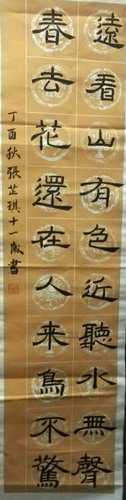 遠看山有色近聽水無聲
春去花還在人来鳥不驚
丁酉秋張芷琪十一歲書